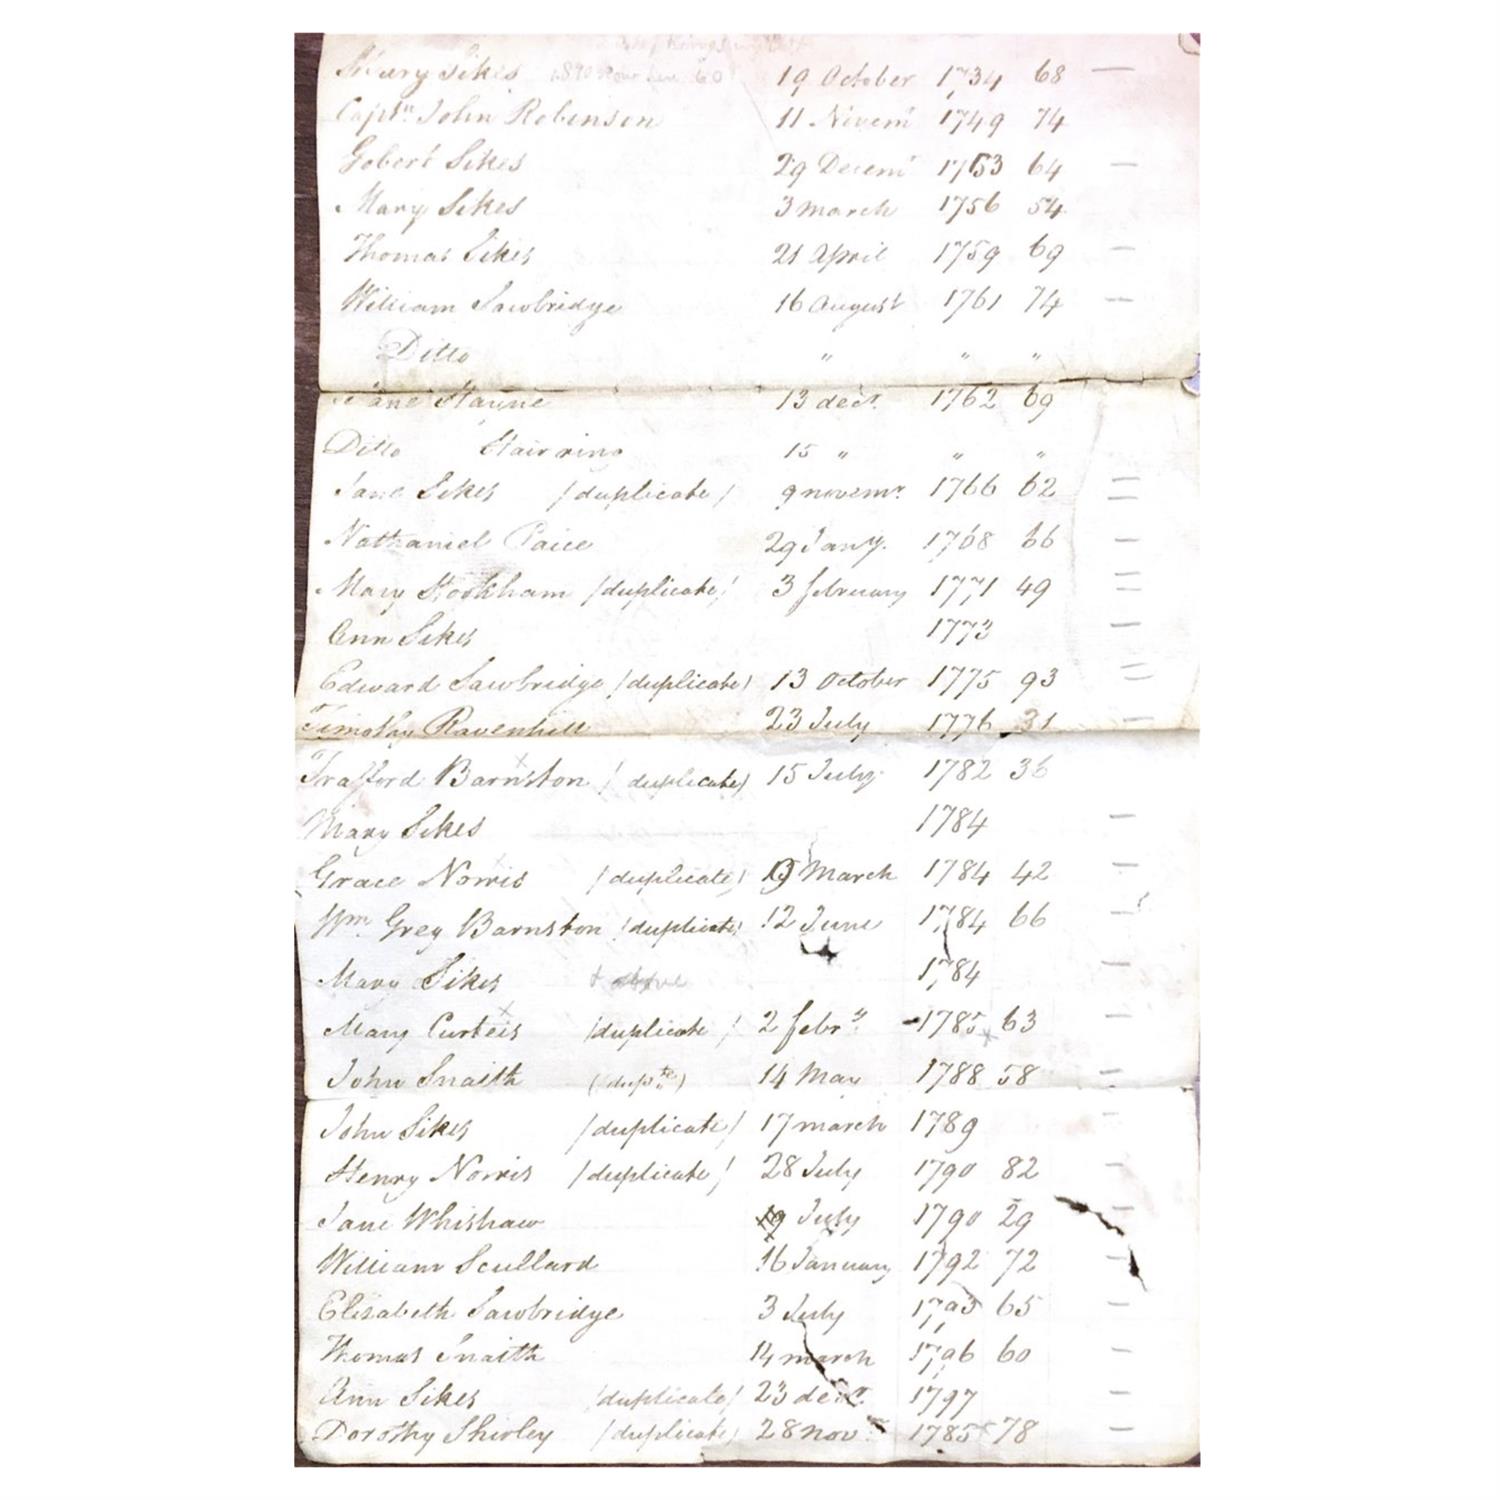 Mary Sikes 19 October 1734 68 —
Captn. John Robinson 11 Novemr 1749 74
Gobert Sikes 29 Decemr 1753 64 —
Mary Sikes 3 March 1756 54
Thomas Sikes 21 April 1759 69 —
William Sawbridge 16 August 1761 74 —
Ditto " " "
Jane Stayne 13 decr. 1762 69
Ditto Hair ring 15 " " "
Jane Sikes /duplicate/ 9 novemr. 1766 62 =
Nathaniel Paice 29 Jany. 1768 66 —
Mary Stockham /duplicate/ 3 february 1771 49 =
Ann Sikes 1773 —
Edward Sawbridge /duplicate/ 13 October 1775 93 =
Timothy Ravenhill 23 July 1776 31 —
Trafford Barnston /duplicate/ 15 July 1782 36
Mary Sikes 1784 —
Grace Norris /duplicate/ March 1784 42 —
Wm. Grey Barnston /duplicate/ 12 June 1784 66 —
Mary Sikes 1784 —
Mary Curteis /duplicate/ 2 febry. 1785 63 —
John Snaith (dupte) 14 May 1788 58 —
John Sikes /duplicate/ 17 march 1789 —
Henry Norris /duplicate/ 28 July 1790 82 —
Jane Whishaw 19 July 1790 29 —
William Scullard 16 January 1792 72 —
Elizabeth Sawbridge 3 July 1793 65 —
Thomas Snaith 14 march 1796 60 —
Ann Sikes /duplicate/ 23 decr. 1797 —
Dorothy Shirley /duplicate/ 28 novr. 1785 78 —